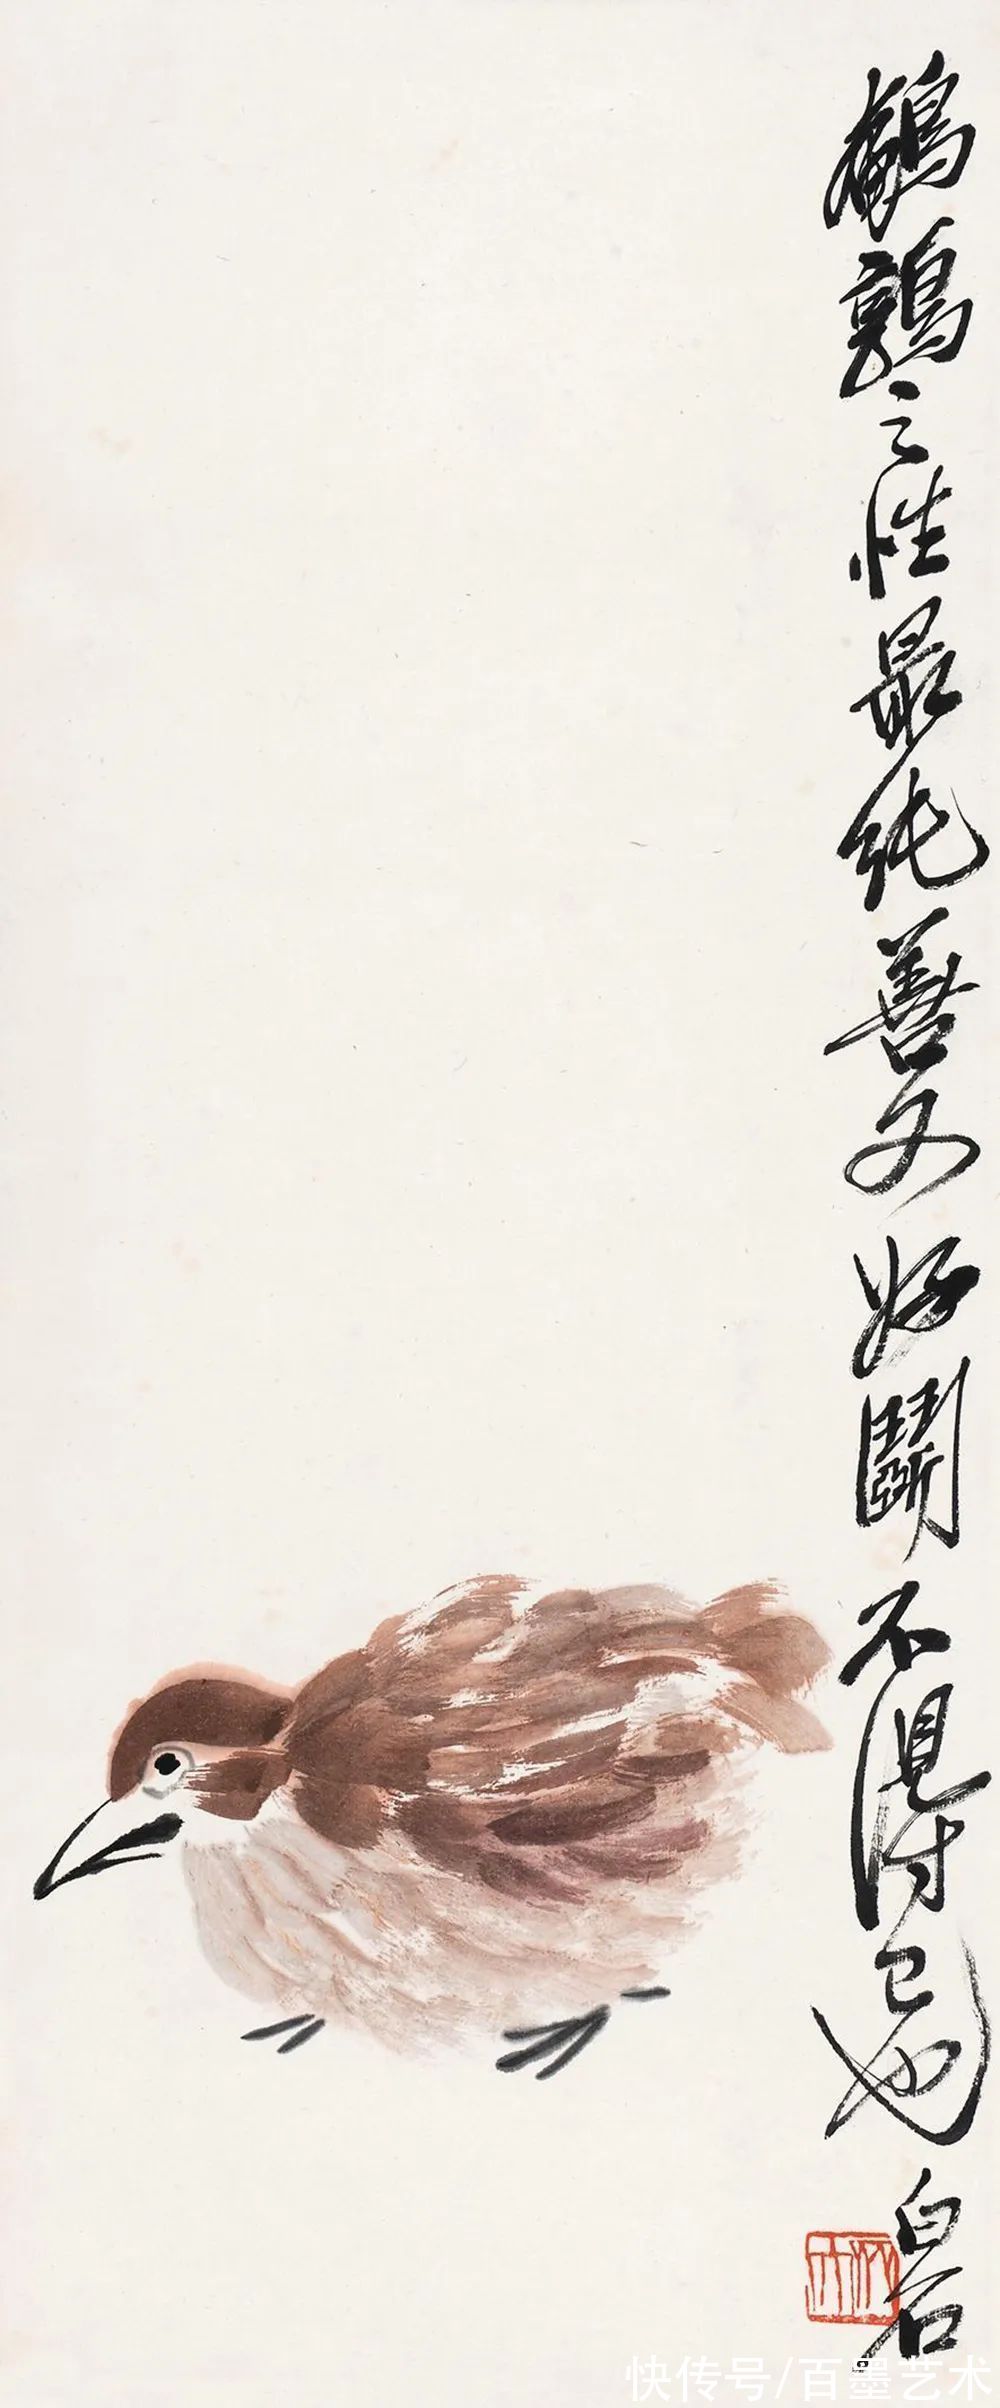 鵪鶉之性最純善又好鬭不得已也
白石
快传号/百墨艺术